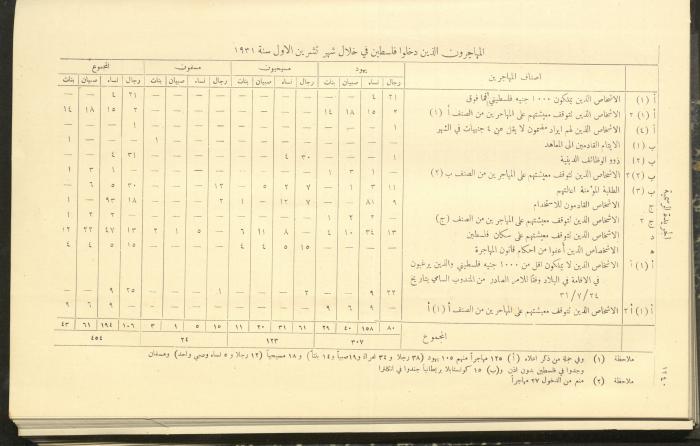 المهاجرون الذين دخلوا فلسطين في خلال شهر تشرين الاول سنة ١٩٣١
اصناف المهاجرين | يهود | مسيحيون | مسلمون | المجموع
رجال نساء صبيان بنات | رجال نساء صبيان بنات | رجال نساء صبيان بنات | رجال نساء صبيان بنات
أ (١) الاشخاص الذين يملكون ١٠٠٠ جنيه فلسطيني فما فوق | ٢١ ٤ — — | — — — — | — — — — | ٢١ ٤ — —
أ (١) ٢ الاشخاص الذين تتوقف معيشتهم على المهاجرين من الصنف أ (١) | ٢ ١٥ ١٨ ١٤ | — — — — | — — — — | ٢ ١٥ ١٨ ١٤
أ (٤) الاشخاص الذين لهم ايراد مضمون لا يقل عن ٤ جنيهات في الشهر | ١ — — — | — — — — | — — — — | ١ — — —
ب (١) الايتام القادمين الى المعاهد | — — — — | — — — — | — — — ١ | — — — ١
ب (٢) ذوو الوظائف الدينية | ١ — — — | ٣٠ ٤ — — | — — — — | ٣١ ٤ — —
ب (٢) ٢ الاشخاص الذين تتوقف معيشتهم على المهاجرين من الصنف ب (٢) | — ١ ٣ ١ | — — — — | — — — — | — ١ ٣ ١
ب (٣) الطلبة المؤمنة اعالتهم | ١١ ٣ ١ — | ٧ ٢ ٥ — | ١٢ — — — | ٣٠ ٥ ٦ —
ج الاشخاص القادمون للاستخدام | ٩ ٨١ — — | ٧ ١٢ — ١ | ٢ — — — | ١٨ ٩٣ — ١
ج ٢ الاشخاص الذين تتوقف معيشتهم على المهاجرين من الصنف (ج) | — ٢ ٢ ١ | — — — — | — — — — | — ٢ ٢ ١
د الاشخاص الذين تتوقف معيشتهم على سكان فلسطين | ١٣ ٣٤ ١٠ ٤ | — ٨ ١١ ٦ | — ٥ ١ ٢ | ١٣ ٤٧ ٢٢ ١٢
ه الاشخاص الذين أعفوا من احكام قانون المهاجرة | — — — — | ١٥ ٥ ٤ ٤ | — — — — | ١٥ ٥ ٤ ٤
أ (١) أ الاشخاص الذين لا يملكون اقل من ١٠٠٠ جنيه فلسطيني والذين يرغبون
في الاقامة في البلاد وفقاً للامر الصادر من المندوب السامي بتاريخ
٣١/٧/٢٤ | ٢٢ ٩ — — | ٢ — — — | ١ — — — | ٢٥ ٩ — —
أ (١) أ ٢ الاشخاص الذين تتوقف معيشتهم على المهاجرين من الصنف أ (١) أ | — ٩ ٦ ٩ | — — — — | — — — — | — ٩ ٦ ٩
المجموع | ٨٠ ١٥٨ ٤٠ ٢٩ | ٦١ ٣١ ٢٠ ١١ | ١٥ ٥ ١ ٣ | ١٥٦ ١٩٤ ٦١ ٤٣
٣٠٧ | ١٢٣ | ٢٤ | ٤٥٤
ملاحظة (١) وفي جملة من ذكر اعلاه (أ) ١٢٥ مهاجراً منهم ١٠٥ يهود (٣٨ رجلا و ٣٤ امرأة و١٩صبياً و ١٤ بنتاً) و ١٨ مسيحياً (١٢ رجلا و ٥ نساء وصبي واحد) ومسلمان
وجدوا في فلسطين بدون اذن و(ب) ١٥ كونستابلا بريطانياً جندوا في انكلترا
ملاحظة (٢) منع من الدخول ٢٧ مهاجراً
الجريدة الرسمية
١٢٤٠